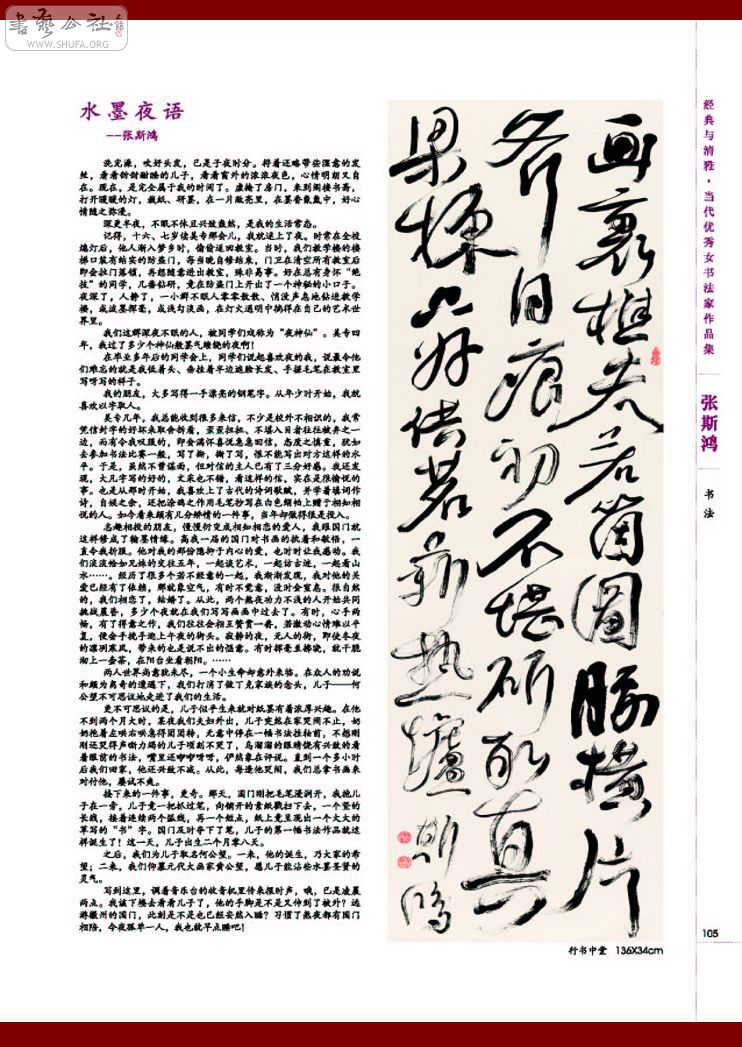 書藝公社
WWW.SHUFA.ORG
水墨夜语
——张斯鸿
洗完澡，吹好头发，已是子夜时分。捋着还略带些湿意的发
丝，看着甜甜酣睡的儿子，看着窗外的浓浓夜色，心情明朗又自
在。现在，是完全属于我的时间了。虚掩了房门，来到阁楼书斋，
打开暖暖的灯，敷纸、研墨，在一片敞亮里，在墨香氤氲中，好心
情随之弥漫。
深更半夜，不眠不休且兴致盎然，是我的生活常态。
记得，十六、七岁读美专那会儿，我就迷上了夜。时常在全校
熄灯后，他人渐入梦乡时，偷偷返回教室。当时，我们教学楼的楼
梯口装有结实的防盗门，每当晚自修结束，门卫在清空所有教室后
即会拉门落锁，再想随意进出教室，殊非易事。好在总有身怀“绝
技”的同学，几番钻研，竟在防盗门上开出了一个神秘的小口子。
夜深了，人静了，一小群不眠人零零散散、悄没声息地钻进教学
楼，或泼墨挥毫，或浅勾淡画，在灯火通明中徜徉在自己的艺术世
界里。
我们这群深夜不眠的人，被同学们戏称为“夜神仙”。美专四
年，我过了多少个神仙般墨气缭绕的夜啊！
在毕业多年后的同学会上，同学们说起喜欢夜的我，说最令他
们难忘的就是我低着头、垂拉着半边遮脸长发、手握毛笔在教室里
写呀写的样子。
我的朋友，大多写得一手漂亮的钢笔字。从年少时开始，我就
喜欢以字取人。
美专几年，我总能收到很多来信，不少是校外不相识的，我常
凭信封字的好坏来取舍拆看，歪歪扭扭、不堪入目者往往被弃之一
边，而有令我叹服的，即会满怀喜悦急急回信，态度之慎重，犹如
去参加书法比赛一般，写了撕，撕了写，惟不能写出对方这样的水
平。于是，虽然不曾谋面，但对信的主人已有了三分好感。我还发
现，大凡字写的好的，文采也不错，看这样的信，实在是很愉悦的
事。也是从那时开始，我喜欢上了古代的诗词歌赋，并学着填词作
诗，自娱之余，还把涂鸦之作用毛笔抄写在白色绢帕上赠于相知相
悦的人。如今看来颇有几分矫情的一件事，当年却做得很是投入。
志趣相投的朋友，慢慢衍变成相知相恋的爱人，我跟国门就
这样修成了翰墨情缘。高我一届的国门对书画的执着和敏悟，一
直令我折服。他对我的那份隐抑于内心的爱，也时时让我感动。我
们淡淡恰如兄妹的交往五年，一起谈艺术，一起访古迹，一起看山
水……。经历了很多个若不经意的一起，我渐渐发现，我对他的关
爱已经有了依赖，那就象空气，有时不觉意，没时会窒息。很自然
的，我们相恋了，结婚了。从此，两个熬夜功力不浅的人开始共同
挑战晨昏，多少个夜就在我们写写画画中过去了。有时，心手两
畅，有了得意之作，我们往往会相互赞赏一番，若激动心情难以平
复，便会手挽手逛上午夜的街头。寂静的夜，无人的街，即使冬夜
的凛冽寒风，带来的也是说不出的惬意。有时挥毫至拂晓，就干脆
沏上一壶茶，在阳台坐看朝阳。……
两人世界尚意犹未尽，一个小生命却意外来临。在众人的劝说
和颇为离奇的遭遇下，我们打消了做丁克家族的念头，儿子——何
公望不可思议地走进了我们的生活。
更不可思议的是，儿子似乎生来就对纸墨有着浓厚兴趣。在他
不到两个月大时，某夜我们夫妇外出，儿子突然在家哭闹不止，奶
奶抱着左哄右哄急得团团转，无意中停在一幅书法挂轴前，不想刚
刚还哭得声嘶力竭的儿子顷刻不哭了，乌溜溜的眼睛饶有兴致的看
着眼前的书法，嘴里还咿咿呀呀，俨然象在评说。直到一个多小时
后我们回家，他还兴致不减。从此，每逢他哭闹，我们总拿书画来
对付他，屡试不爽。
接下来的一件事，更奇。那天，国门刚把毛笔浸润开，我抱儿
子在一旁，儿子竟一把抓过笔，向铺开的素纸戳扫下去，一个竖的
长线，接着连续两个弧线，再一个短点，纸上竟呈现出一个大大的
草写的“书”字。国门及时夺下了笔，儿子的第一幅书法作品就这
样诞生了！这一天，儿子出生二个月零八天。
之后，我们为儿子取名何公望。一来，他的诞生，乃大家的希
望；二来，我们仰慕元代大画家黄公望，愿儿子能沾些水墨圣贤的
灵气。
写到这里，调着音乐台的收音机里传来报时声，哦，已是凌晨
两点。我该下楼去看看儿子了，他的手脚是不是又伸到了被外？远
游徽州的国门，此刻是不是也已经安然入睡？习惯了熬夜都有国门
相陪，今夜孤单一人，我也就早点睡吧！
画裏樵夫若箇圖腰横片
斧日痕初不堪斫取真
果好供茗薪热爐
斯鸿
行书中堂　136X34cm
经典与清雅·当代优秀女书法家作品集
张斯鸿
书法
105